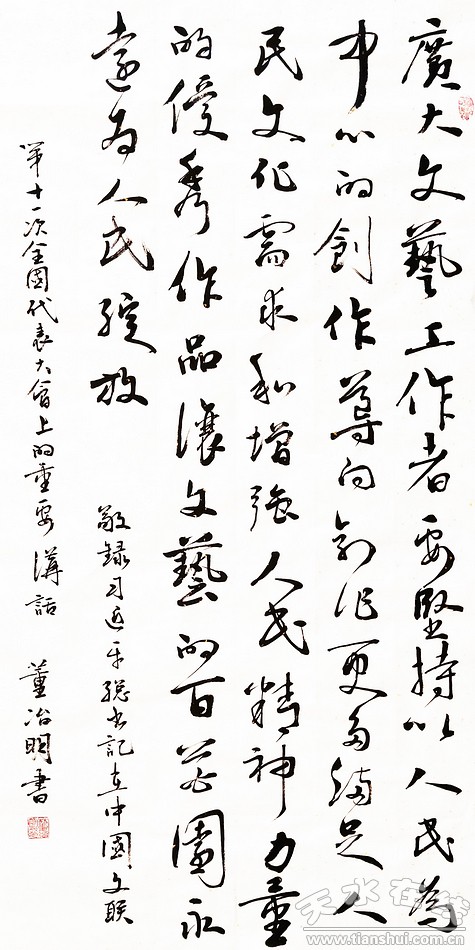 廣大文藝工作者要堅持以人民為
中心的創作導向創作更多滿足人
民文化需求和增強人民精神力量
的優秀作品讓文藝的百花園永
遠為人民綻放
敬録习近平總書記在中國文联
第十一次全國代表大會上的重要講話 董冶明書
天水在线
www.tianshui.com.cn